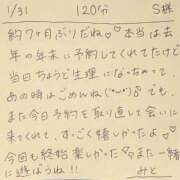 1/31 120分 S様
約7ヶ月ぶりだね♡本当は去
年の年末に予約してくれてたけど
当日ちょうど生理になっちゃって
あの時はごめんね(°´ω`°)。でも、
また今日予約を取り直して会いに
来てくれて、すっごく嬉しかったよ♡
今回も終始楽しかった♡また一緒
に遊ぼうね!! みと